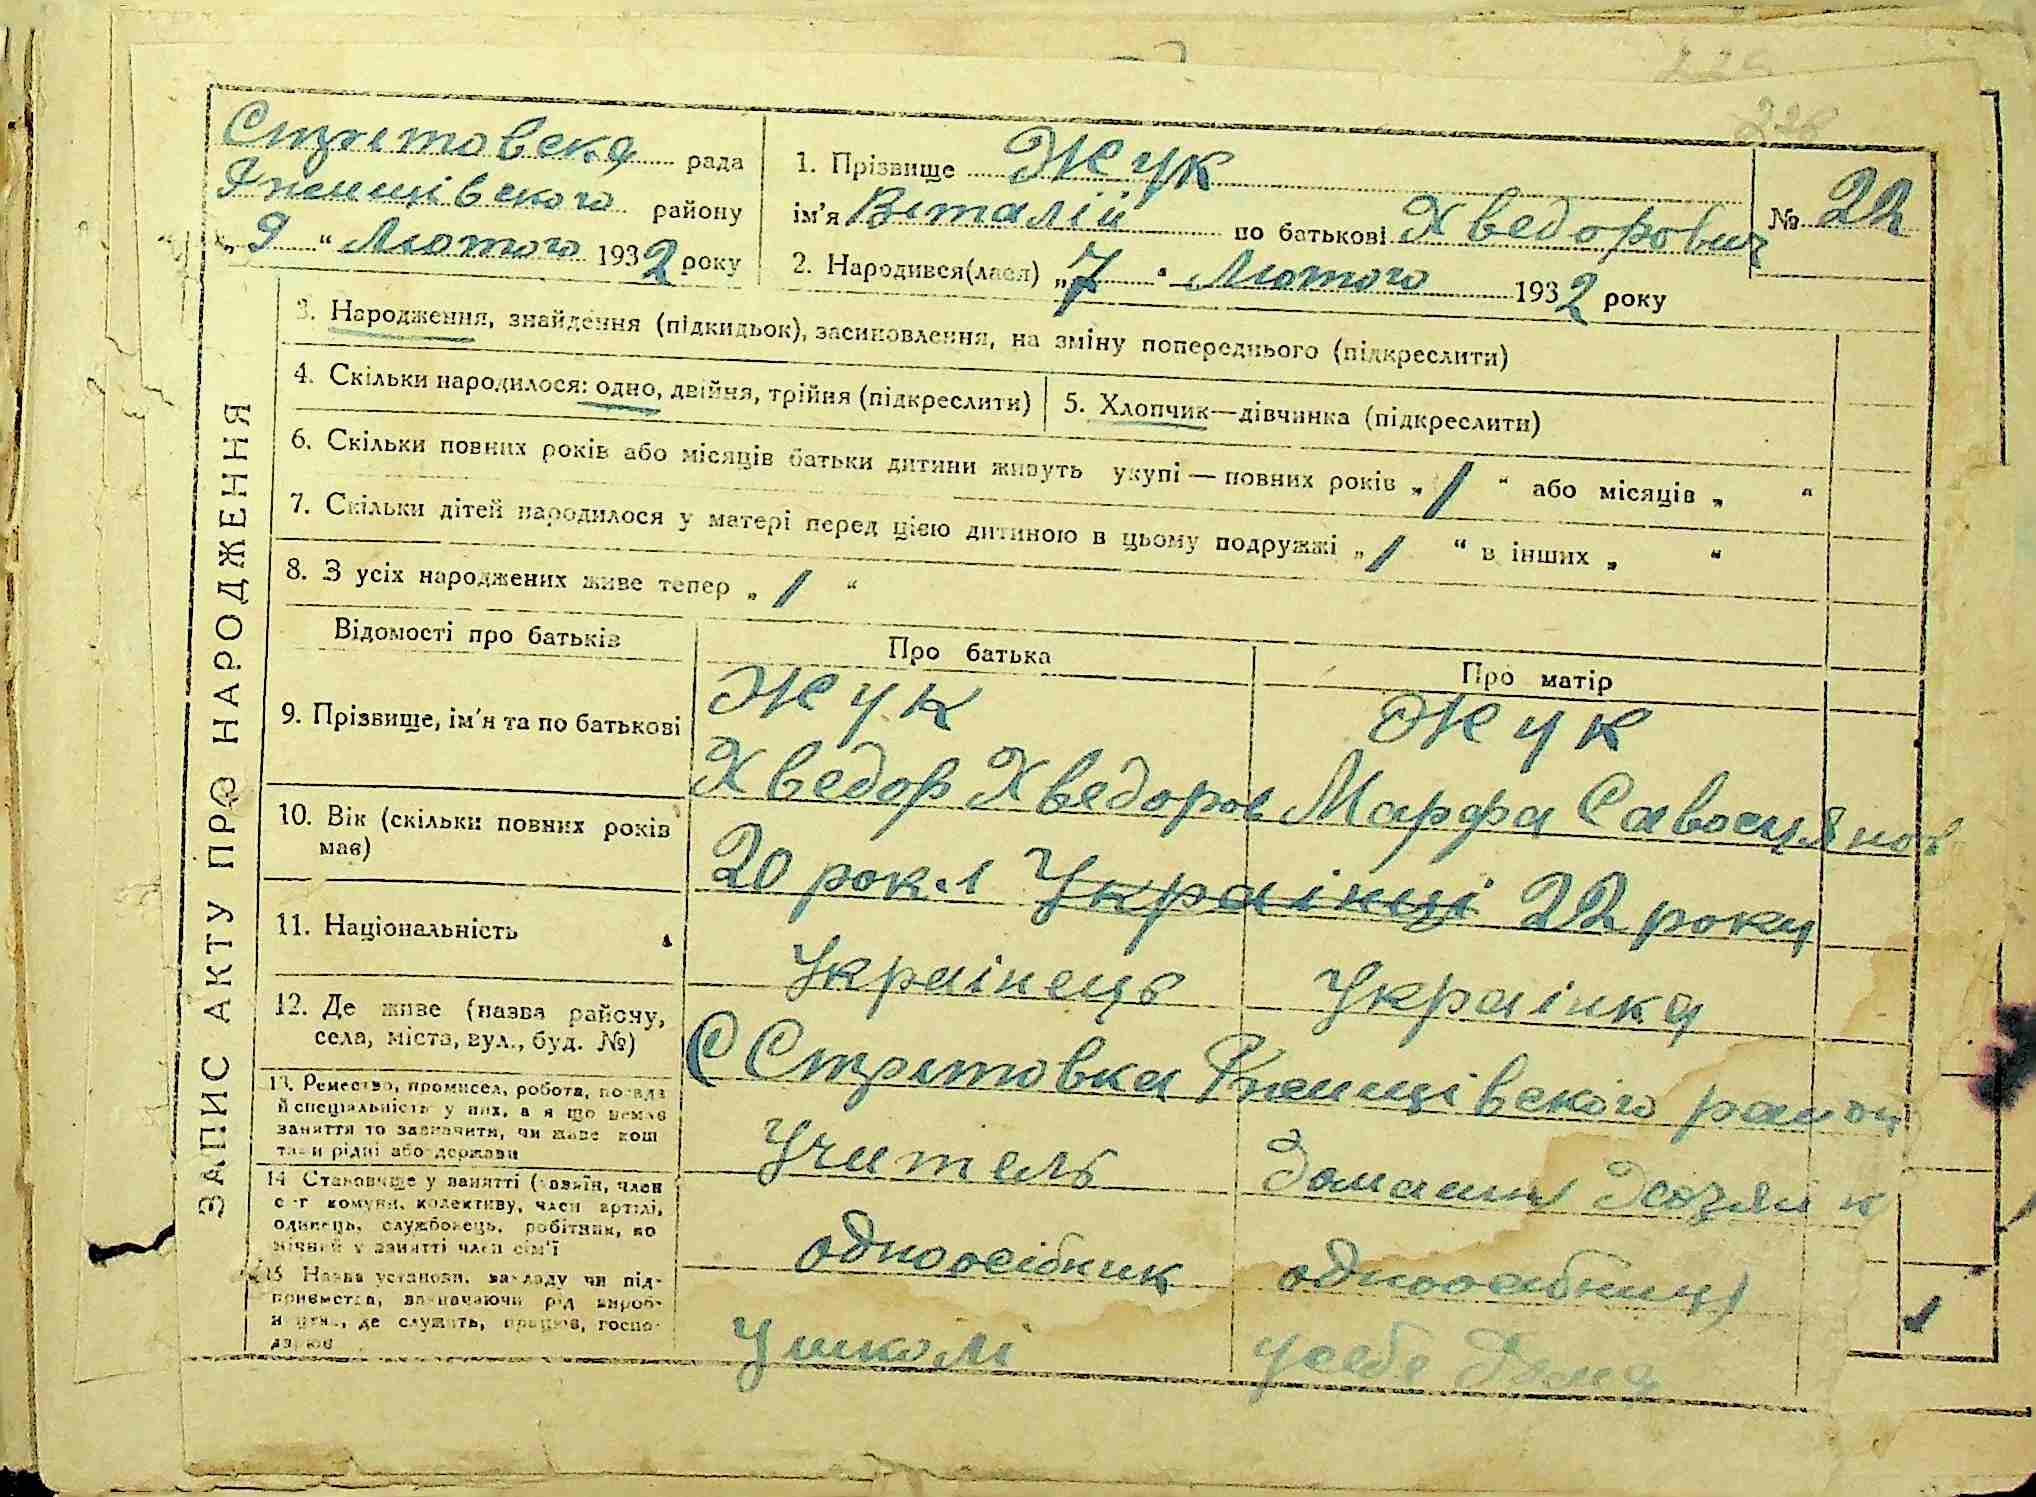 226
Стритовска рада
Яненцівского району
„ 9 “ Лютого 1932 року
1. Прізвище Жук
ім'я Віталій по батькові Хведорович
№ 22
2. Народився(лася) „7 “ Лютого 1932 року
3. Народження, знайдення (підкидьок), засиновлення, на зміну попереднього (підкреслити)
4. Скільки народилося: одно, двійня, трійня (підкреслити)
5. Хлопчик—дівчинка (підкреслити)
6. Скільки повних років або місяців батьки дитини живуть укупі — повних років „ 1 “ або місяців „ “
7. Скільки дітей народилося у матері перед цією дитиною в цьому подружжі „ 1 “ в інших „ “
8. З усіх народжених живе тепер „ 1 “
ЗАПИС АКТУ ПРО НАРОДЖЕННЯ
Відомості про батьків
Про батька
Про матір
9. Прізвище, ім'я та по батькові
Жук
Хведор Хведоров
Жук
Марфа Савосцянов
10. Вік (скільки повних років
має)
20 рокл Украінці 22 року
11. Національність
Украінець
Украінка
12. Де живе (назва району,
села, міста, вул., буд. №)
С Стритовка Яненцівского район
13. Ремество, промисел, робота, посада
й спеціальність у них, а якщо немає
заняття то зазначити, чи живе кош
там рідні або держави
Учитель
Домашн Хозяи
14 Становище у занятті (хазяїн, член
с-г комуни, колективу, член артілі,
одинець, службовець, робітник, по
мічний у занятті член сім'ї
одноосібник
одноосібниця
15 Назва установи, закладу чи під-
приємства, зазначаючи рід вироб-
ництва, де служить, працює, госпо-
дарює
У школі
у себе дома